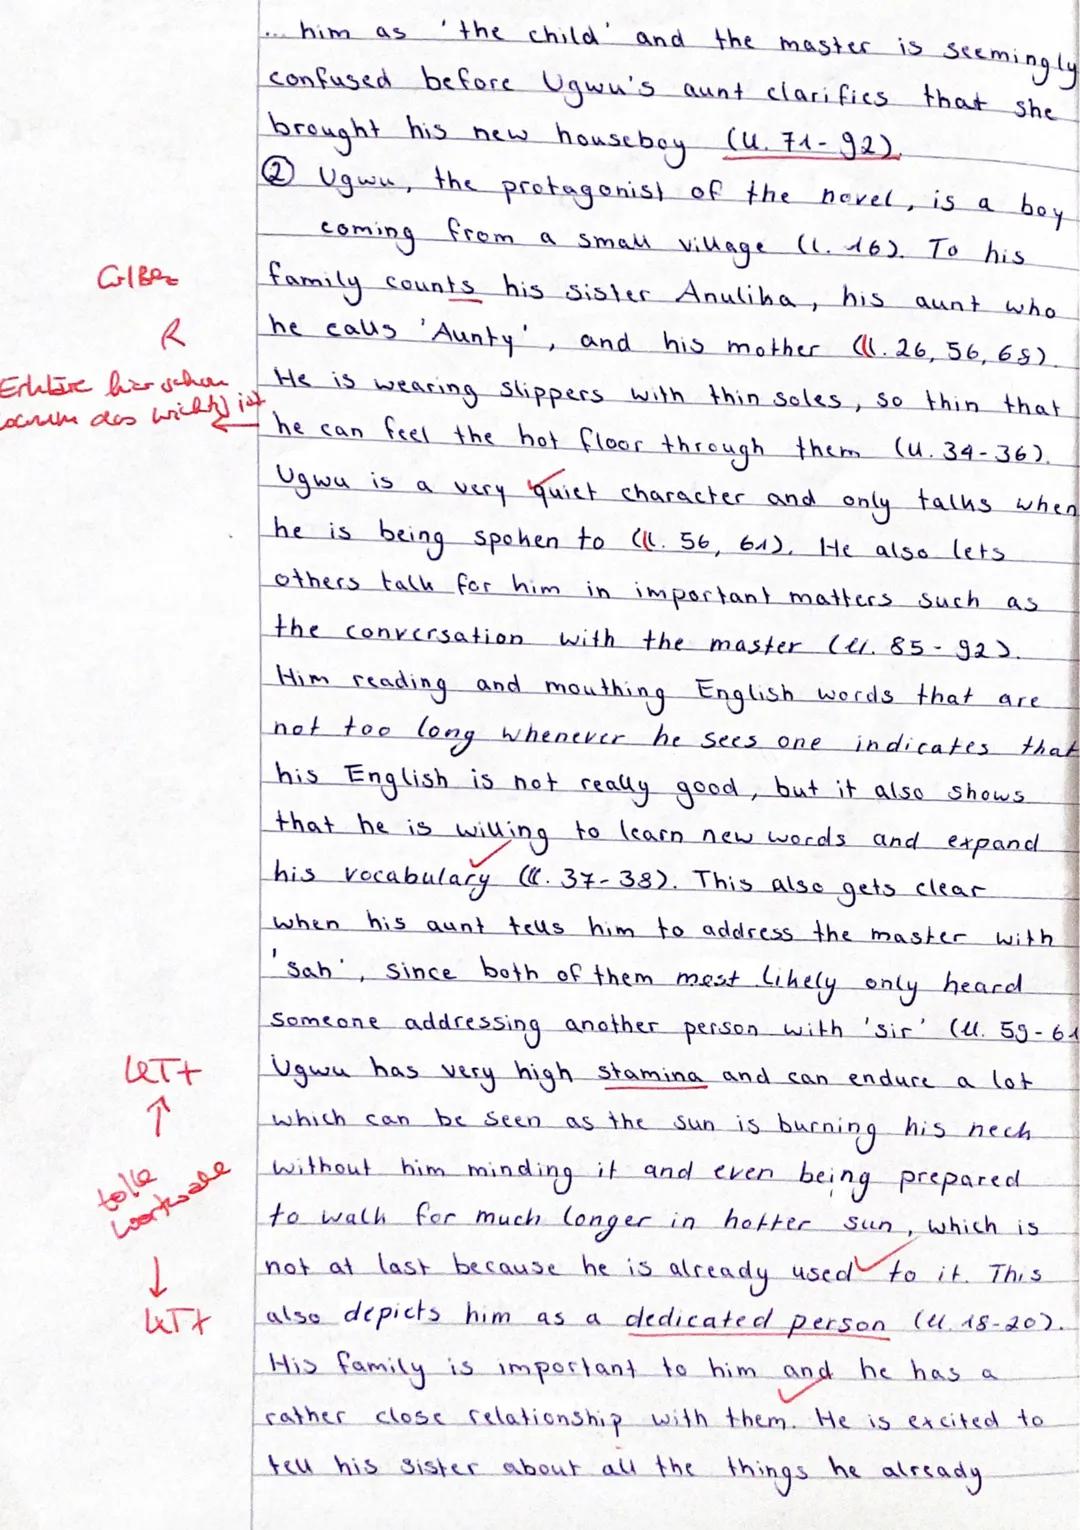 ... him as 'the child' and the master is seemingly
confused before Ugwu's aunt clarifies that she
brought his new houseboy (ll. 71-92).
② Ugwu, the protagonist of the novel, is a boy
coming from a small village (l. 16). To his
family counts his sister Anulika, his aunt who
he calls 'Aunty', and his mother (ll. 26, 56, 68).
R
Erkläre hier schon
warum das wichtig ist
He is wearing slippers with thin soles, so thin that
he can feel the hot floor through them (ll. 34-36).
Ugwu is a very quiet character and only talks when
he is being spoken to (ll. 56, 61). He also lets
others talk for him in important matters such as
the conversation with the master (ll. 85-92).
Him reading and mouthing English words that are
not too long whenever he sees one indicates that
his English is not really good, but it also shows
that he is willing to learn new words and expand
his vocabulary (ll. 37-38). This also gets clear
when his aunt tells him to address the master with
'sah', since both of them most likely only heard
someone addressing another person with 'sir' (ll. 59-61
Ugwu has very high stamina and can endure a lot
which can be seen as the sun is burning his neck
without him minding it and even being prepared
to walk for much longer in hotter sun, which is
not at last because he is already used to it. This
also depicts him as a dedicated person (ll. 18-20).
tolle
His family is important to him and he has a
rather close relationship with them. He is excited to
tell his sister about all the things he already